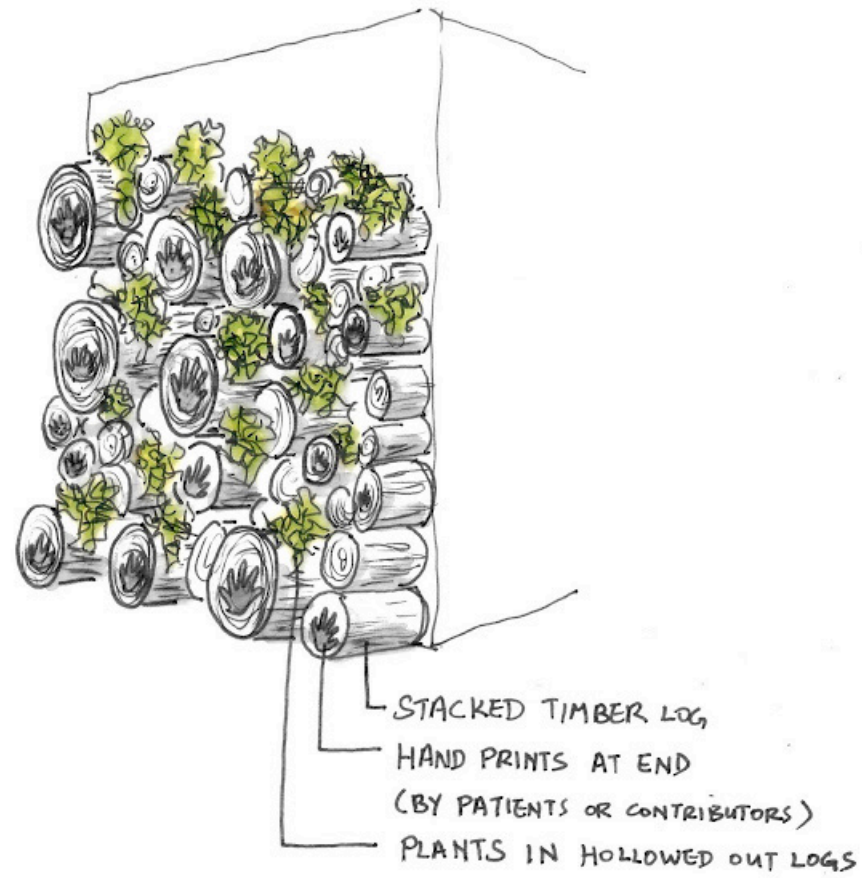 STACKED TIMBER LOG
HAND PRINTS AT END
(BY PATIENTS OR CONTRIBUTORS)
PLANTS IN HOLLOWED OUT LOGS